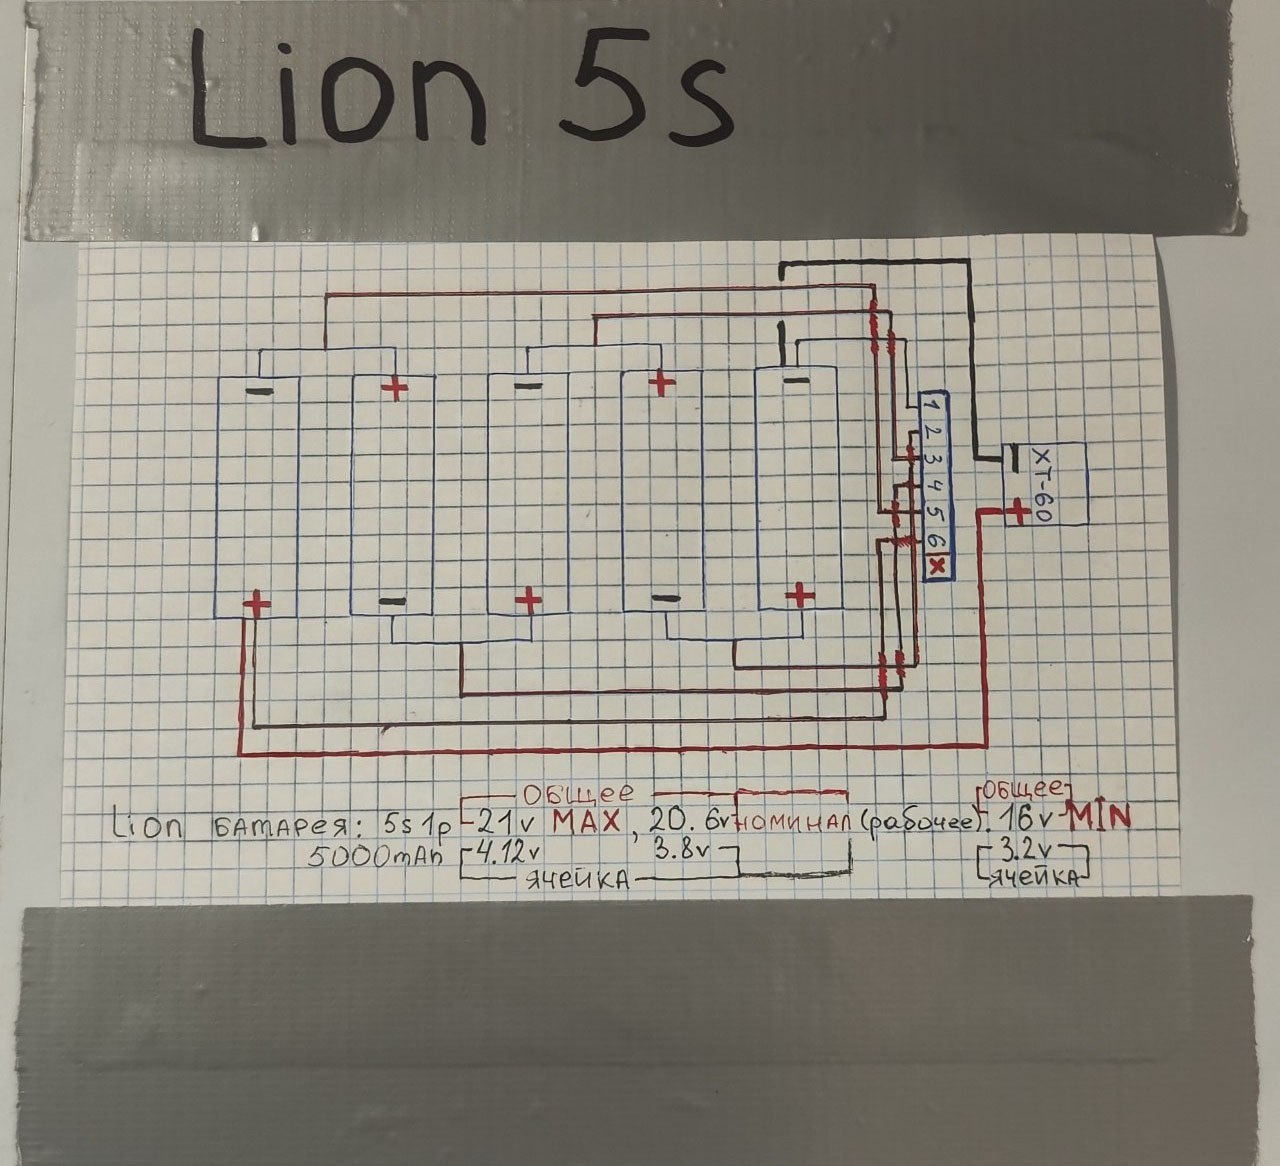 Lion 5s
− + − + −
1
2
3
4
5
6
X
− XT-60
+
+ − + − +
ОБЩЕЕ ОБЩЕЕ
Lion БАТАРЕЯ: 5s 1p 21v MAX, 20.6v НОМИНАЛ (рабочее). 16v MIN
5000mAh 4.12v 3.8v 3.2v
ЯЧЕЙКА ЯЧЕЙКА